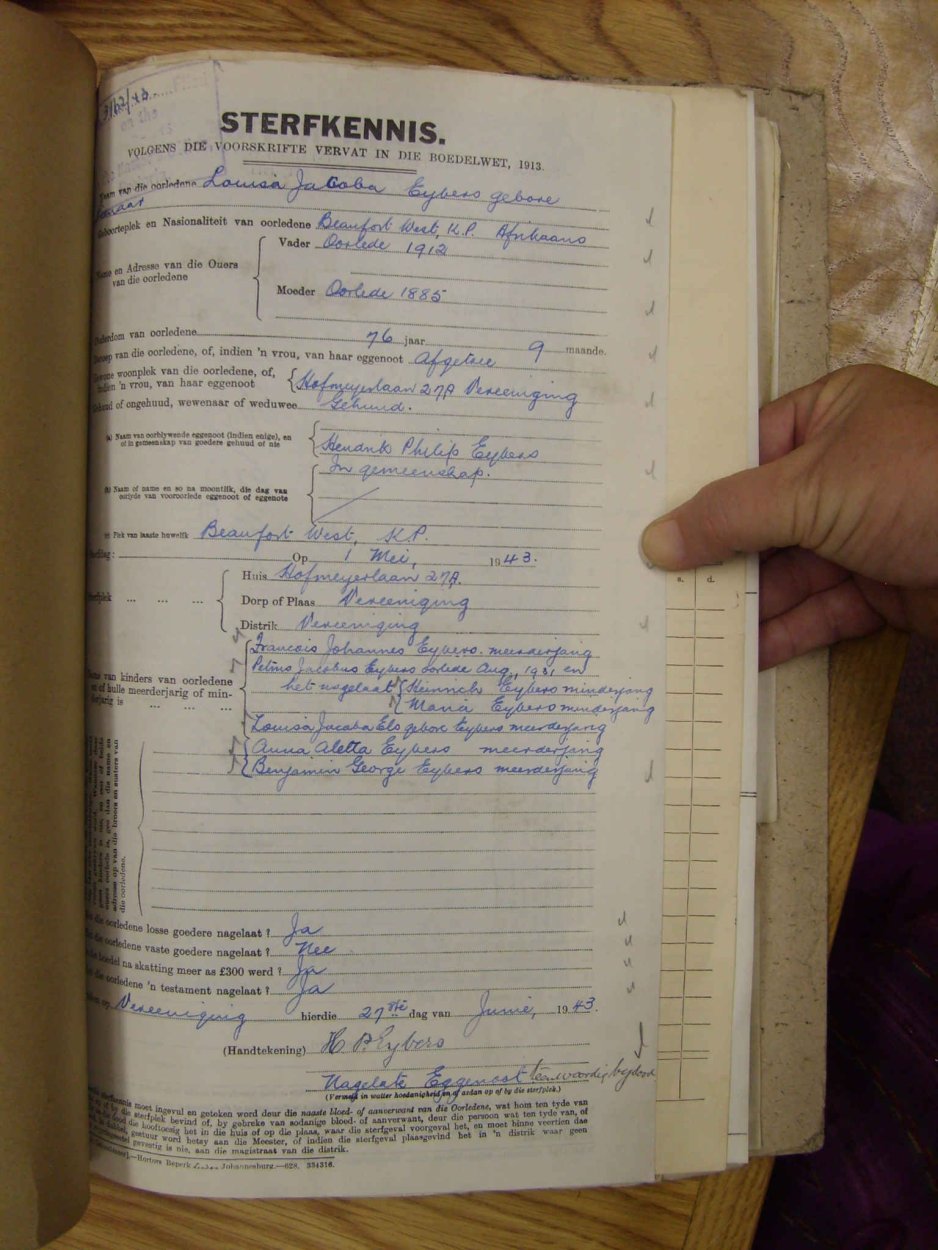 3162/43
STERFKENNIS.
VOLGENS DIE VOORSKRIFTE VERVAT IN DIE BOEDELWET, 1913.
Naam van die oorledene Louisa Jacoba Eybers gebore
Geboorteplek en Nasionaliteit van oorledene Beaufort West, K.P. Afrikaans
Vader Oorlede 1912
Name en Adresse van die Ouers
van die oorledene
Moeder Oorlede 1885
Ouderdom van oorledene 76 jaar 9 maande.
Beroep van die oorledene, of, indien 'n vrou, van haar eggenoot Afgetree
Gewone woonplek van die oorledene, of,
indien 'n vrou, van haar eggenoot Hofmeyerlaan 27A Vereeniging
Gehuud of ongehuud, wewenaar of weduwee Gehuud.
(a) Naam van oorblywende eggenoot (indien enige), en
of in gemeenskap van goedere gehuud of nie
Hendrik Philip Eybers
In gemeenskap.
(b) Naam of name en so na moontlik, die dag van
oorlyde van vooroorlede eggenoot of eggenote
(c) Plek van laaste huwelik Beaufort West, K.P.
Op 1 Mei, 1943.
Huis Hofmeyerlaan 27A.
Sterfplek ... ... ... Dorp of Plaas Vereeniging
Distrik Vereeniging
Francois Johannes Eybers. meerderjarig
Petrus Jacobus Eybers oorlede Aug, 1931 en
Name van kinders van oorledene het nagelaat Heinrich Eybers minderjarig
en of hulle meerderjarig of min-
derjarig is ... ... ... Maria Eybers minderjarig
Louisa Jacoba Els gebore Eybers meerderjarig
Anna Aletta Eybers meerderjarig
Benjamin George Eybers meerderjarig
die oorledene.
die oorledene losse goedere nagelaat? Ja
die oorledene vaste goedere nagelaat? Nee
die boedel na skatting meer as £300 werd? Ja
die oorledene 'n testament nagelaat? Ja
op Vereeniging hierdie 27ste dag van Junie, 1943.
(Handtekening) H P Eybers
Nagelate Eggenoot teenwoordig by dood
(Vermeld in watter hoedanigheid en of anders op of by die sterfplek.)
sterfkennis moet ingevul en geteken word deur die naaste bloed- of aanverwant van die Oorledene, wat hom ten tyde van
by die sterfplek bevind of, by gebreke van sodanige bloed- of aanverwant, deur die persoon wat ten tyde van, of
die hoof toesig het in die huis of op die plaas, waar die sterfgeval voorgeval het, en moet binne veertien dae
gestuur word hetsy aan die Meester, of indien die sterfgeval plaasgevind het in 'n distrik waar geen
gevestig is nie, aan die magistraat van die distrik.
Hortors Beperk Johannesburg.—628. 334316.
s. d.